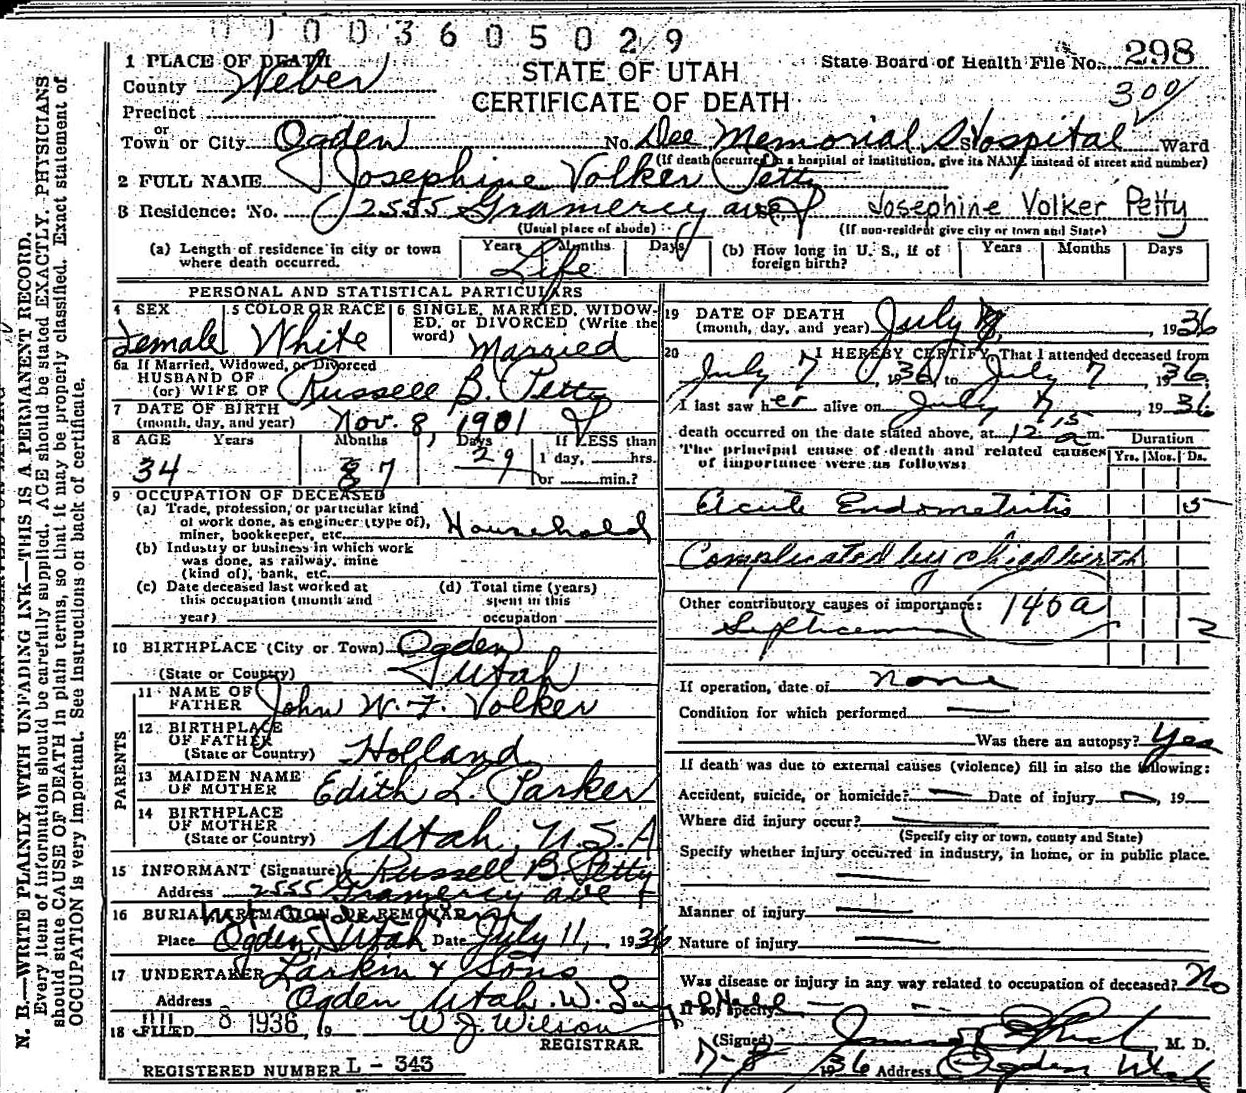 0 1 0 0 3 6 0 5 0 2 9
1 PLACE OF DEATH
County Weber
Precinct
or
Town or City Ogden No. Dee Memorial Hospital St. Ward
(If death occurred in a hospital or institution, give its NAME instead of street and number)
STATE OF UTAH
CERTIFICATE OF DEATH
State Board of Health File No. 298
300
2 FULL NAME Josephine Volker Petty
3 Residence: No. 2555 Gramercy ave Josephine Volker Petty
(Usual place of abode) (If non-resident give city or town and State)
(a) Length of residence in city or town where death occurred. Years Months Days Life
(b) How long in U. S., if of foreign birth? Years Months Days
PERSONAL AND STATISTICAL PARTICULARS
4 SEX Female
5 COLOR OR RACE White
6 SINGLE, MARRIED, WIDOWED, or DIVORCED (Write the word) Married
6a If Married, Widowed, or Divorced
HUSBAND OF
(or) WIFE OF Russell B. Petty
7 DATE OF BIRTH
(month, day, and year) Nov. 8, 1901
8 AGE Years Months Days If LESS than
34 7 29 1 day, hrs.
or min.?
9 OCCUPATION OF DECEASED
(a) Trade, profession, or particular kind
of work done, as engineer (type of),
miner, bookkeeper, etc. Household
(b) Industry or business in which work
was done, as railway, mine
(kind of), bank, etc.
(c) Date deceased last worked at this occupation (month and year)
(d) Total time (years) spent in this occupation
10 BIRTHPLACE (City or Town) Ogden
(State or Country) Utah
PARENTS
11 NAME OF
FATHER John W. F. Volker
12 BIRTHPLACE
OF FATHER
(State or Country) Holland
13 MAIDEN NAME
OF MOTHER Edith L. Parker
14 BIRTHPLACE
OF MOTHER
(State or Country) Utah, U.S.A
15 INFORMANT (Signature) Russell B. Petty
Address 2555 Gramercy ave
16 BURIAL, CREMATION OR REMOVAL
Place Ogden, Utah Date July 11, 1936
17 UNDERTAKER Larkin & Sons
Address Ogden Utah.
18 FILED JUL 8 1936, 19 W J. Wilson
REGISTRAR.
REGISTERED NUMBER L - 343
19 DATE OF DEATH
(month, day, and year) July 1936
20 I HEREBY CERTIFY, That I attended deceased from
July 7, 1936, to July 7, 1936.
I last saw her alive on July 7, 1936
death occurred on the date stated above, at 12 15 a m.
The principal cause of death and related causes
of importance were as follows:
Duration
Yrs. Mos. Ds.
Acute Endometritis 5
Complicated by childbirth
Other contributory causes of importance: 140a
Septicemia 2
If operation, date of none
Condition for which performed
Was there an autopsy? Yes
If death was due to external causes (violence) fill in also the following:
Accident, suicide, or homicide? Date of injury , 19
Where did injury occur?
(Specify city or town, county and State)
Specify whether injury occurred in industry, in home, or in public place.
Manner of injury
Nature of injury
Was disease or injury in any way related to occupation of deceased? No
If so, specify
(Signed) M. D.
7-8 1936 Address Ogden Utah
N. B.—WRITE PLAINLY WITH UNFADING INK—THIS IS A PERMANENT RECORD.
Every item of information should be carefully supplied. AGE should be stated EXACTLY. PHYSICIANS
should state CAUSE OF DEATH in plain terms, so that it may be properly classified. Exact statement of
OCCUPATION is very important. See instructions on back of certificate.